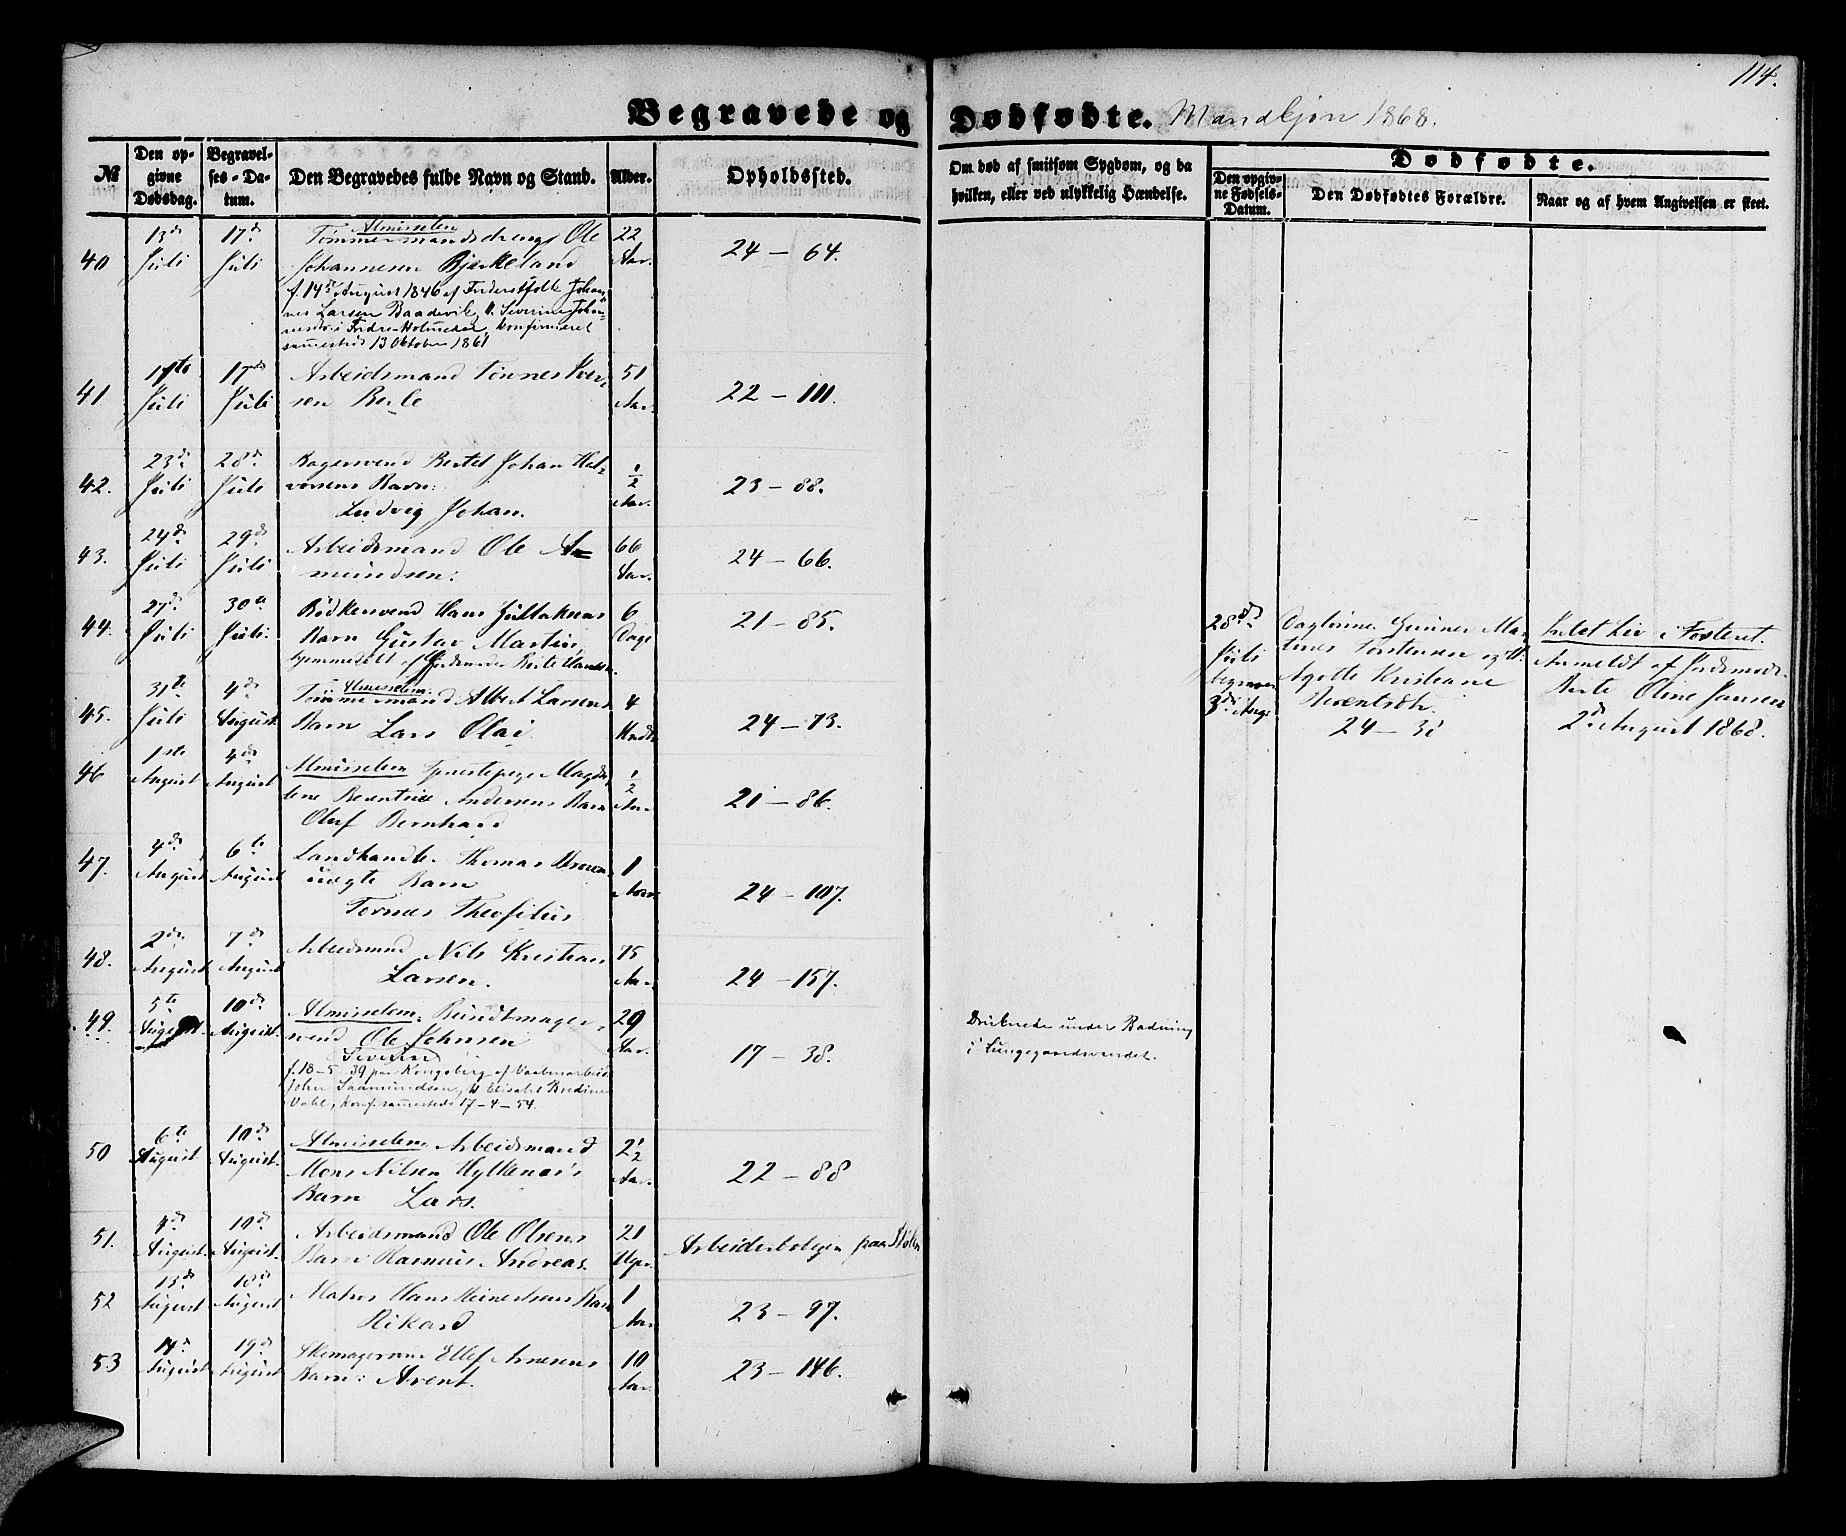 114.
Begravede og Dødfødte. Mandkjøn 1868.
№
Den opgivne Dødsdag.
Begravelses-Datum.
Den Begravedes fulde Navn og Stand.
Alder.
Opholdssted.
Om død af smitsom Sygdom, og da hvilken, eller ved ulykkelig Hændelse.
Dødfødte.
Den opgivne Fødsels-Datum.
Den Dødfødtes Forældre.
Naar og af hvem Angivelsen er skeet.
40 13de Juli 17de Juli
Almisselem
Tømmermandsdreng Ole
Johannesen Bjerkeland
22 Aar. 24 – 64.
f. 14de August 1846 af Johan-
nes Larsen Baadevik, Severine Johan-
konfirmeret
sammesteds 13 Oktober 1861
41 Juli 17de Juli
Arbeidsmand Tønnes Iver-
sen Berle
51 Aar. 22 – 111.
42. 23de Juli 28de Juli
Bagersvend Bertel Johan Hal-
vorsens Barn:
Ludvig Johan.
1/2 Aar. 23 – 88.
43. 24de Juli 29de Juli
Arbeidsmand Ole A-
mundsen:
66 Aar. 24 – 66.
44. 27de Juli 30te Juli.
Bødkersvend Hans
Barn Gustav Martin,
hjemmedøbt af Jordmoder Berte Hansen
6 Dage 21 – 85.
28de Juli begraven 3die Aug.
Gunner Mar-
tines Torstensen og H.
Agotte Kristiane
24 – 38
Intet Liv i Fosteret.
Anmeldt af Jordmoder
Berte Oline Jansen
2de August 1868.
45. 31te Juli 4de August.
Almisselem.
Tømmermand Albert Larsens
Barn Lars Olai.
4 24 – 73.
46 1ste August 4de August
Almisselem Tjenestepige Magda-
lene Berentine Andersens Barn
Oluf Bernhard
1/2 Aar. 21 – 86.
47. 4de August 6te August
Landhandler Thomas
uægte Barn
Tornæs Theofilus
1 Aar 24 – 107.
48. 2den August 7de August
Arbeidsmand Nils Kristian
Larsen.
75 Aar. 24 – 157.
49. 5te August. 10de August.
Almisselem: Bundtmager-
svend Ole Johnsen
Severin
29 Aar. 17 – 38.
Druknede under Badning
i Lungegaardsvandet.
f. 18 – 5 – 39 paa Kongsberg af Vaabenarbeid.
John Saamundsen, H Elisabet Bredine
Vahl, konf. sammesteds 17 – 4 – 54.
50 6te August 10de August.
Almisselem Arbeidsmand
Mons Nilsen Hylkenæs's
Barn Lars.
2 1/2 Aar. 22 – 88
51. 4de August. 10de August.
Arbeidsmand Ole Olsens
Barn: Rasmus Andreas.
21 Uger. Arbeiderboligen paa Stølen
52 13de August 18de August
Matros Hans Reinertsens Barn
Rikard
1 Aar 23 – 97.
53 14de August 19de August
Skomagersvend Ellef Arnesens
Barn: Arent.
10 Aar. 23 – 146.